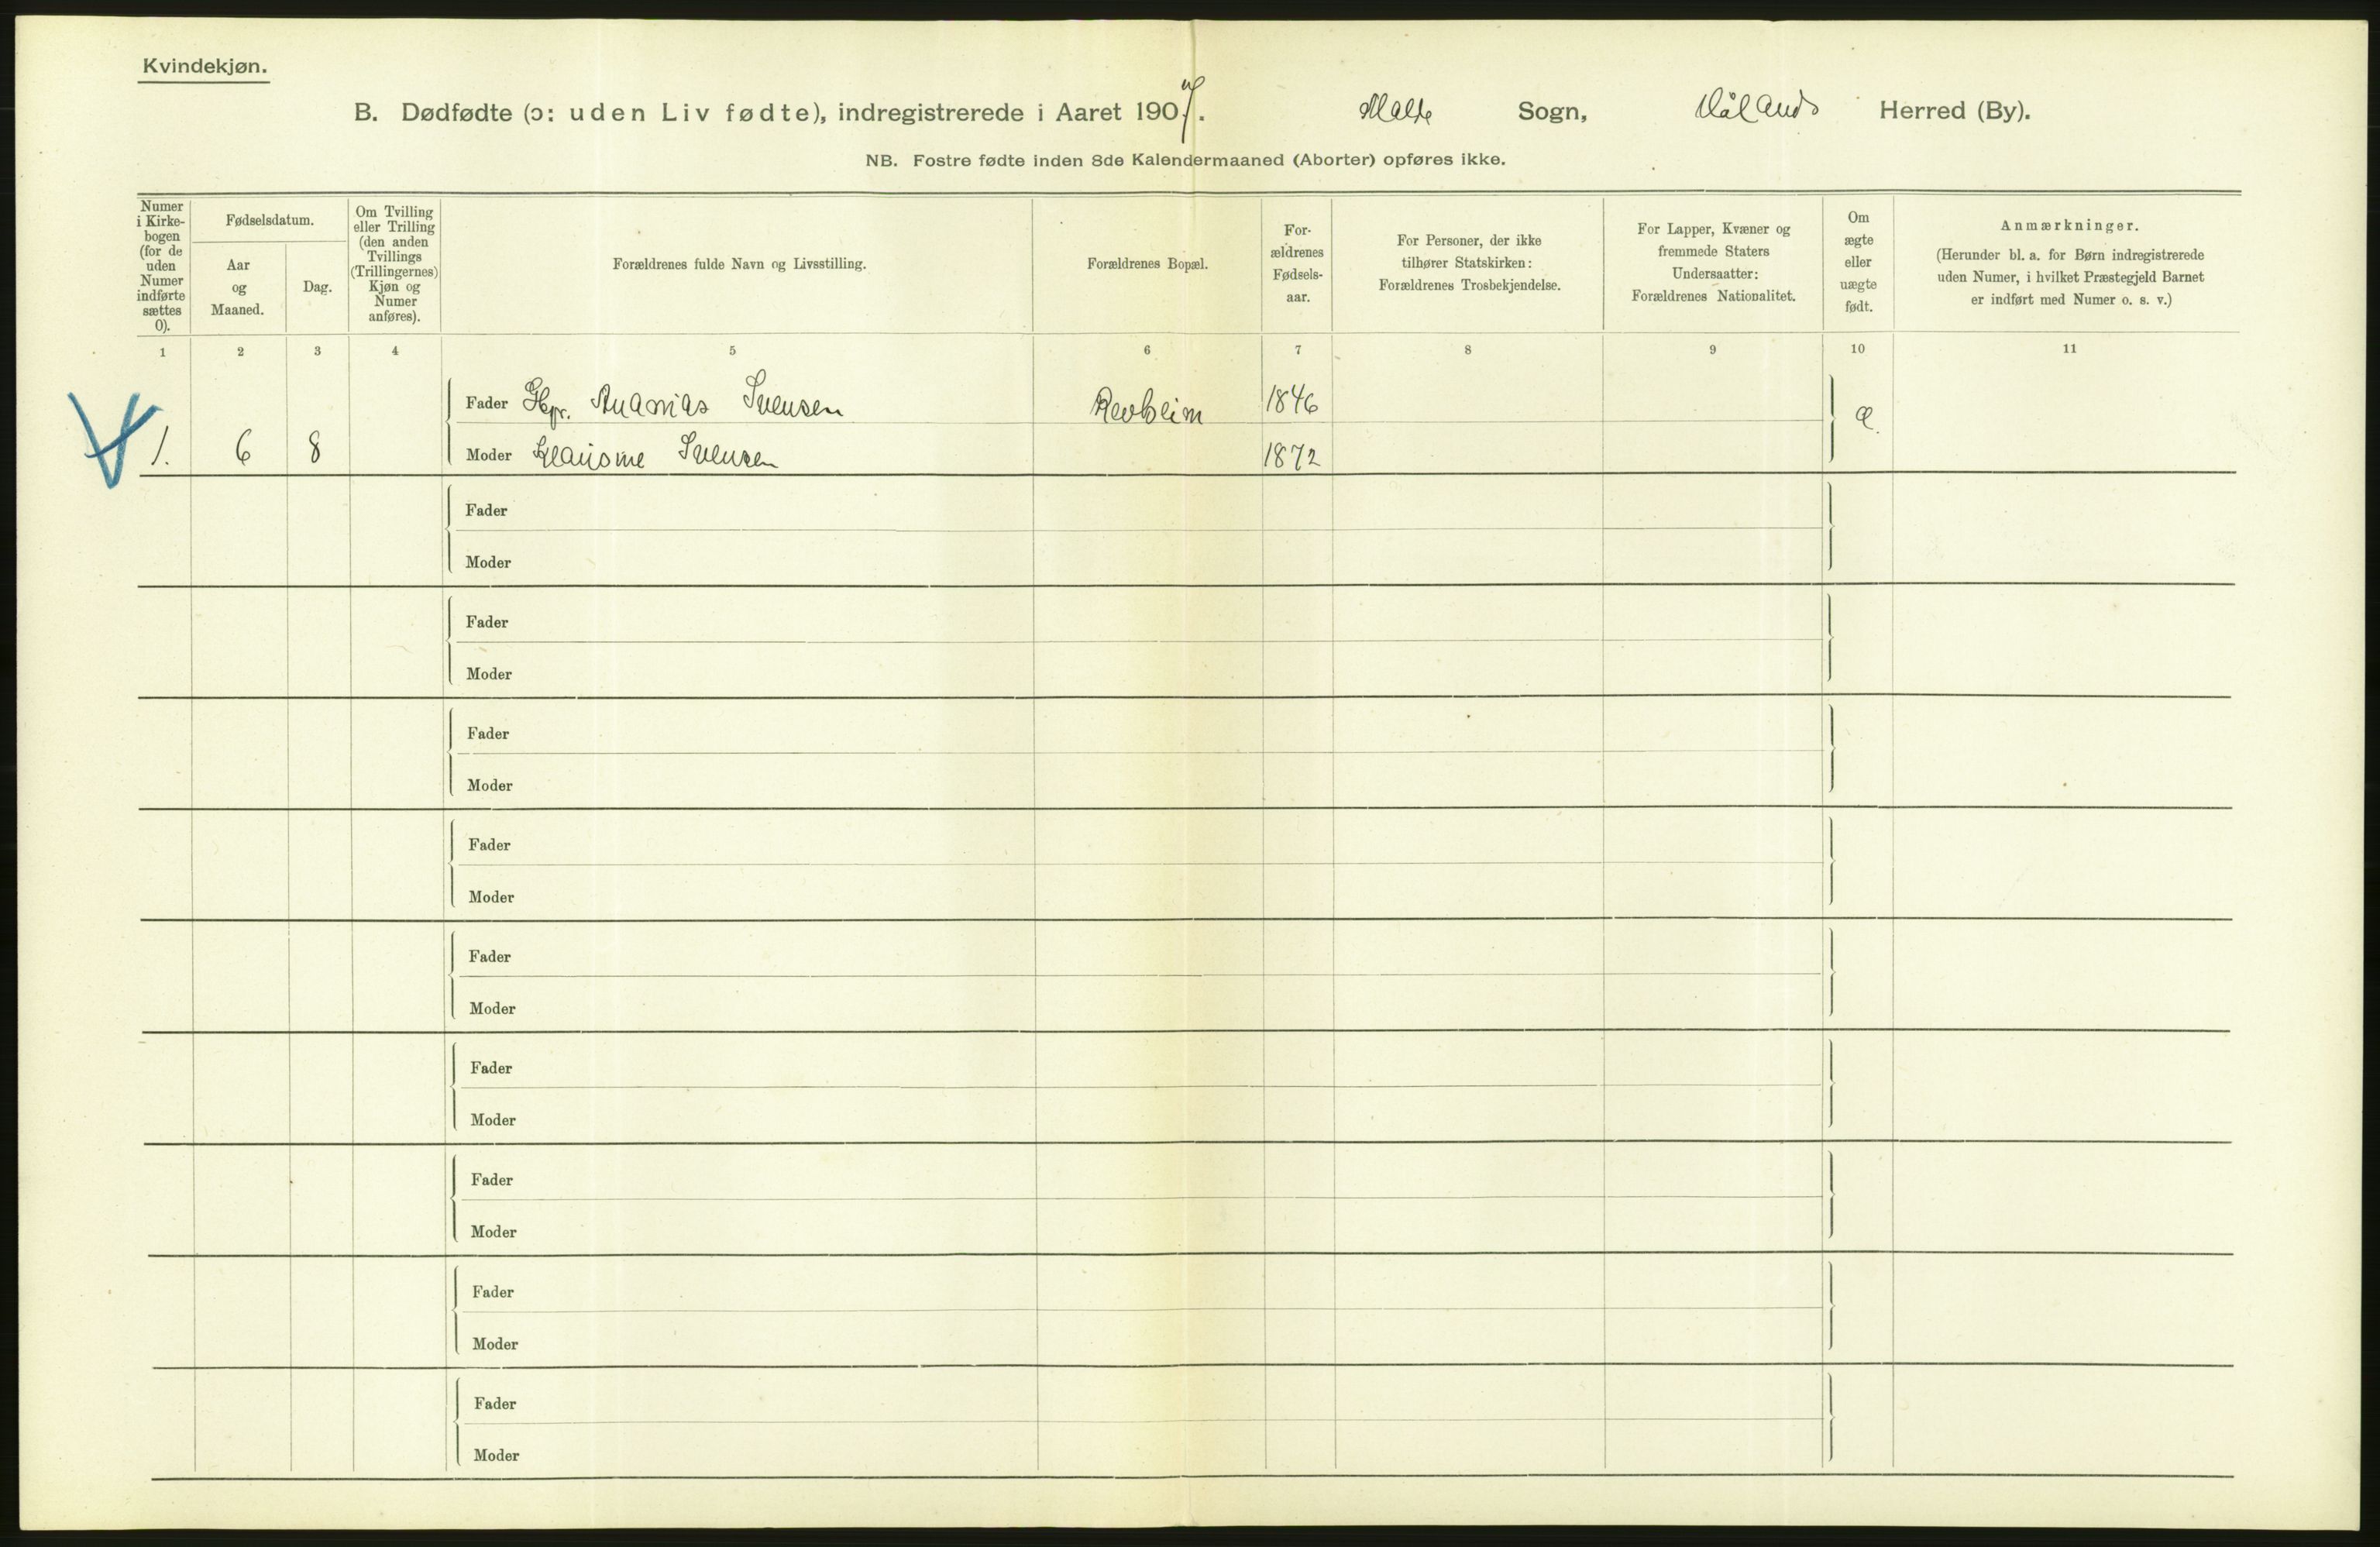 Kvindekjøn.
B. Dødfødte (ɔ: uden Liv fødte), indregistrerede i Aaret 1907. Malde Sogn, Håland Herred (By).
NB. Fostre fødte inden 8de Kalendermaaned (Aborter) opføres ikke.
Numer i Kirke-bogen (for de uden Numer indførte sættes 0).
Fødselsdatum.
Aar og Maaned.
Dag.
Om Tvilling eller Trilling (den anden Tvillings (Trillingernes) Kjøn og Numer anføres).
Forældrenes fulde Navn og Livsstilling.
Forældrenes Bopæl.
For-ældrenes Fødsels-aar.
For Personer, der ikke tilhører Statskirken: Forældrenes Trosbekjendelse.
For Lapper, Kvæner og fremmede Staters Undersaatter: Forældrenes Nationalitet.
Om ægte eller uægte født.
Anmærkninger.
(Herunder bl. a. for Børn indregistrerede uden Numer, i hvilket Præstegjeld Barnet er indført med Numer o. s. v.)
1 2 3 4 5 6 7 8 9 10 11
Fader Ananias Svensen Revheim 1846 Æ.
1. 6 8 Moder Svensen 1872
Fader
Moder
Fader
Moder
Fader
Moder
Fader
Moder
Fader
Moder
Fader
Moder
Fader
Moder
Fader
Moder
Fader
Moder